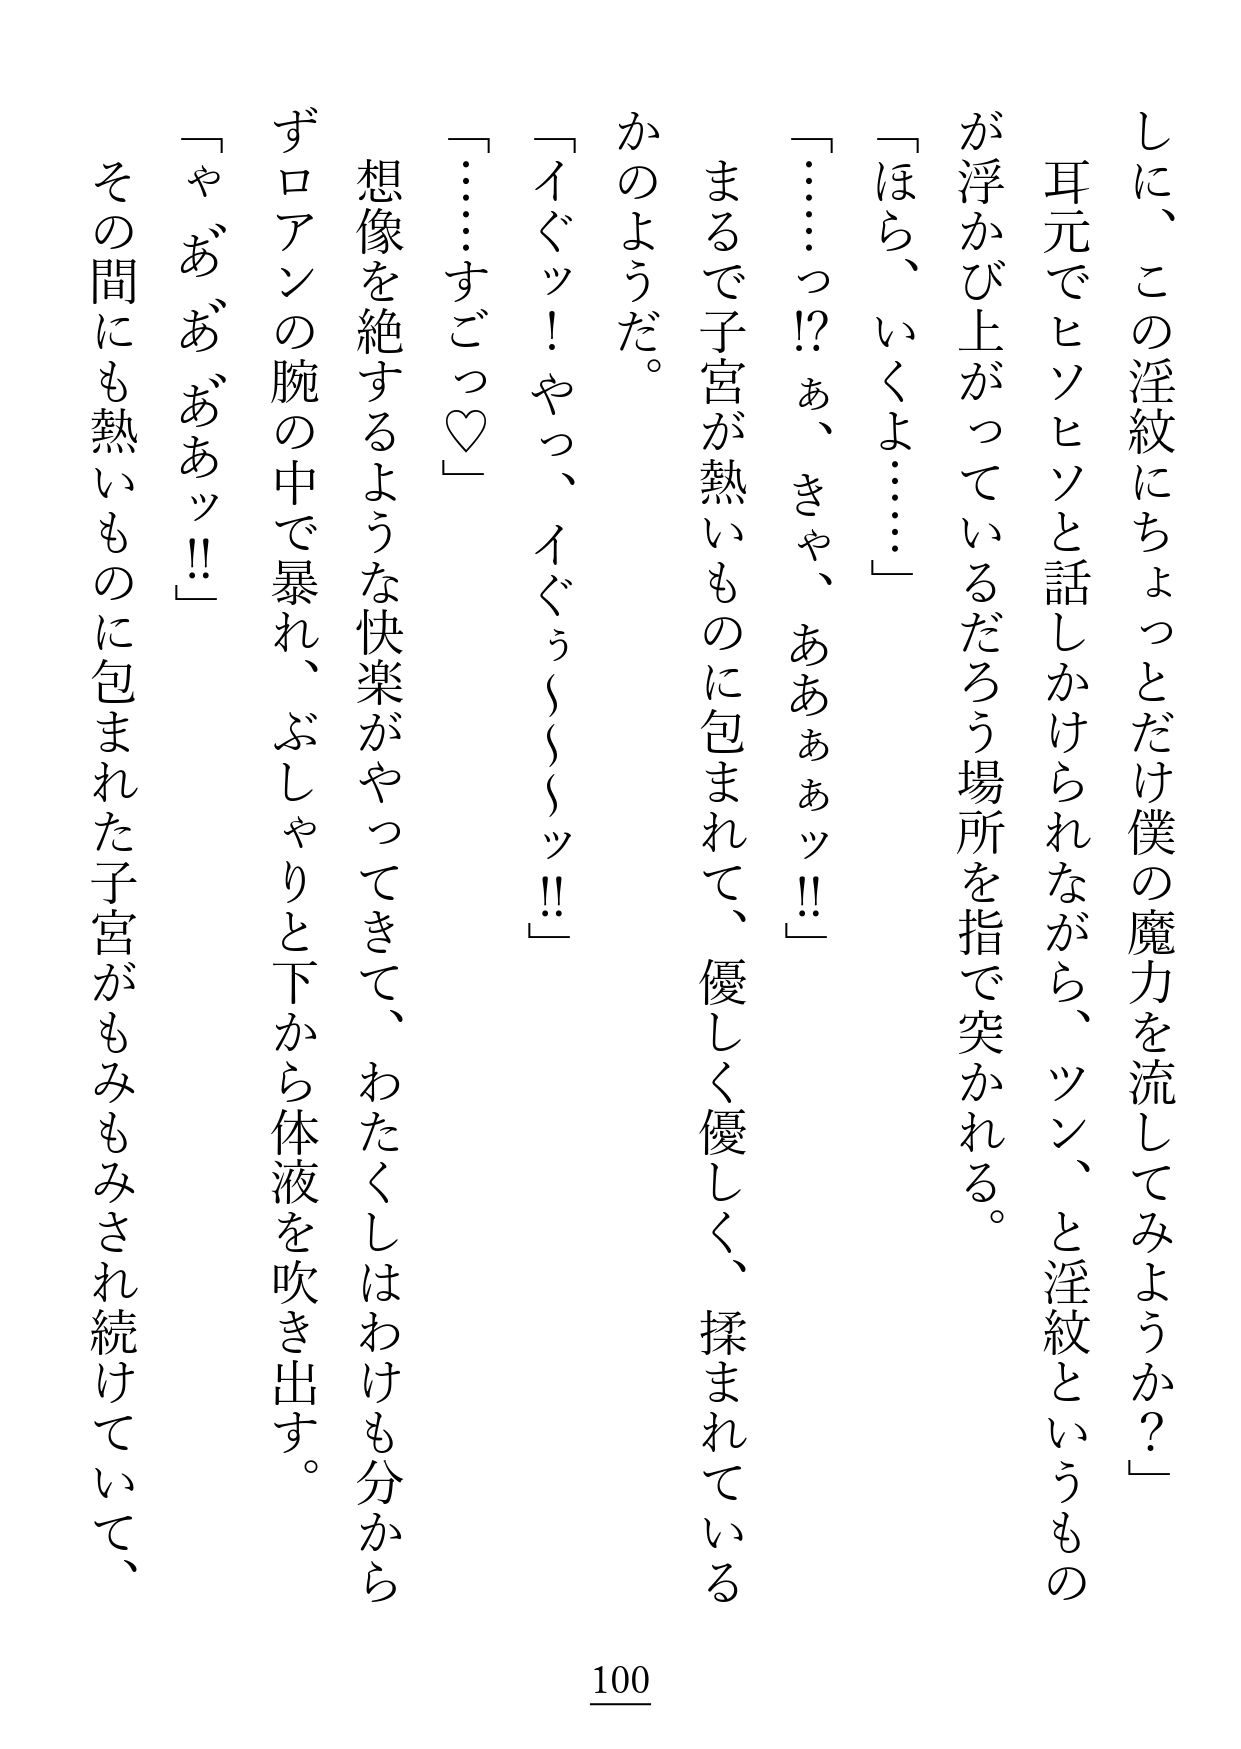 しに、この淫紋にちょっとだけ僕の魔力を流してみようか？」
　耳元でヒソヒソと話しかけられながら、ツン、と淫紋というもの
が浮かび上がっているだろう場所を指で突かれる。
「ほら、いくよ……」
「……っ⁉ぁ、きゃ、ああぁぁッ‼」
　まるで子宮が熱いものに包まれて、優しく優しく、揉まれている
かのようだ。
「イぐッ！やっ、イぐぅ～～～ッ‼」
「……すごっ♡」
　想像を絶するような快楽がやってきて、わたくしはわけも分から
ずロアンの腕の中で暴れ、ぶしゃりと下から体液を吹き出す。
「ゃあ゙あ゙あ゙あッ‼」
　その間にも熱いものに包まれた子宮がもみもみされ続けていて、
100